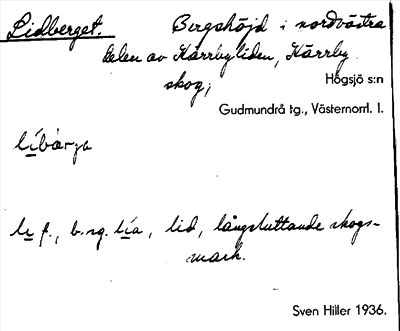 Lidberget. Bergshöjd i nordvästra
delen av Kärrbyliden, Kärrby
skog,
Högsjö s:n
Gudmundrå tg., Västernorrl. l.
lìbárja
lì f., b. sg. lìa, lid, långsluttande skogs-
mark.
Sven Hiller 1936.